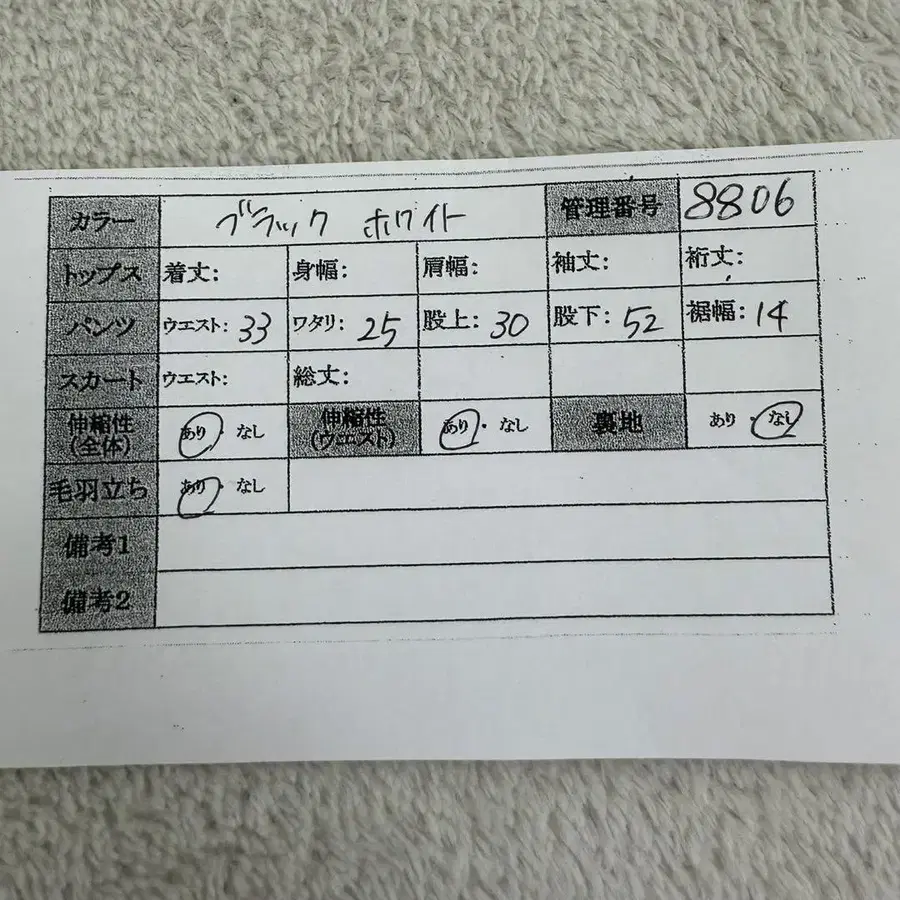 カラー ブラック ホワイト 管理番号 8806
トップス 着丈: 身幅: 肩幅: 袖丈: 裄丈:
パンツ ウエスト: 33 ワタリ: 25 股上: 30 股下: 52 裾幅: 14
スカート ウエスト: 総丈:
伸縮性 (全体) あり・なし 伸縮性 (ウエスト) あり・なし 裏地 あり・なし
毛羽立ち あり・なし
備考1
備考2